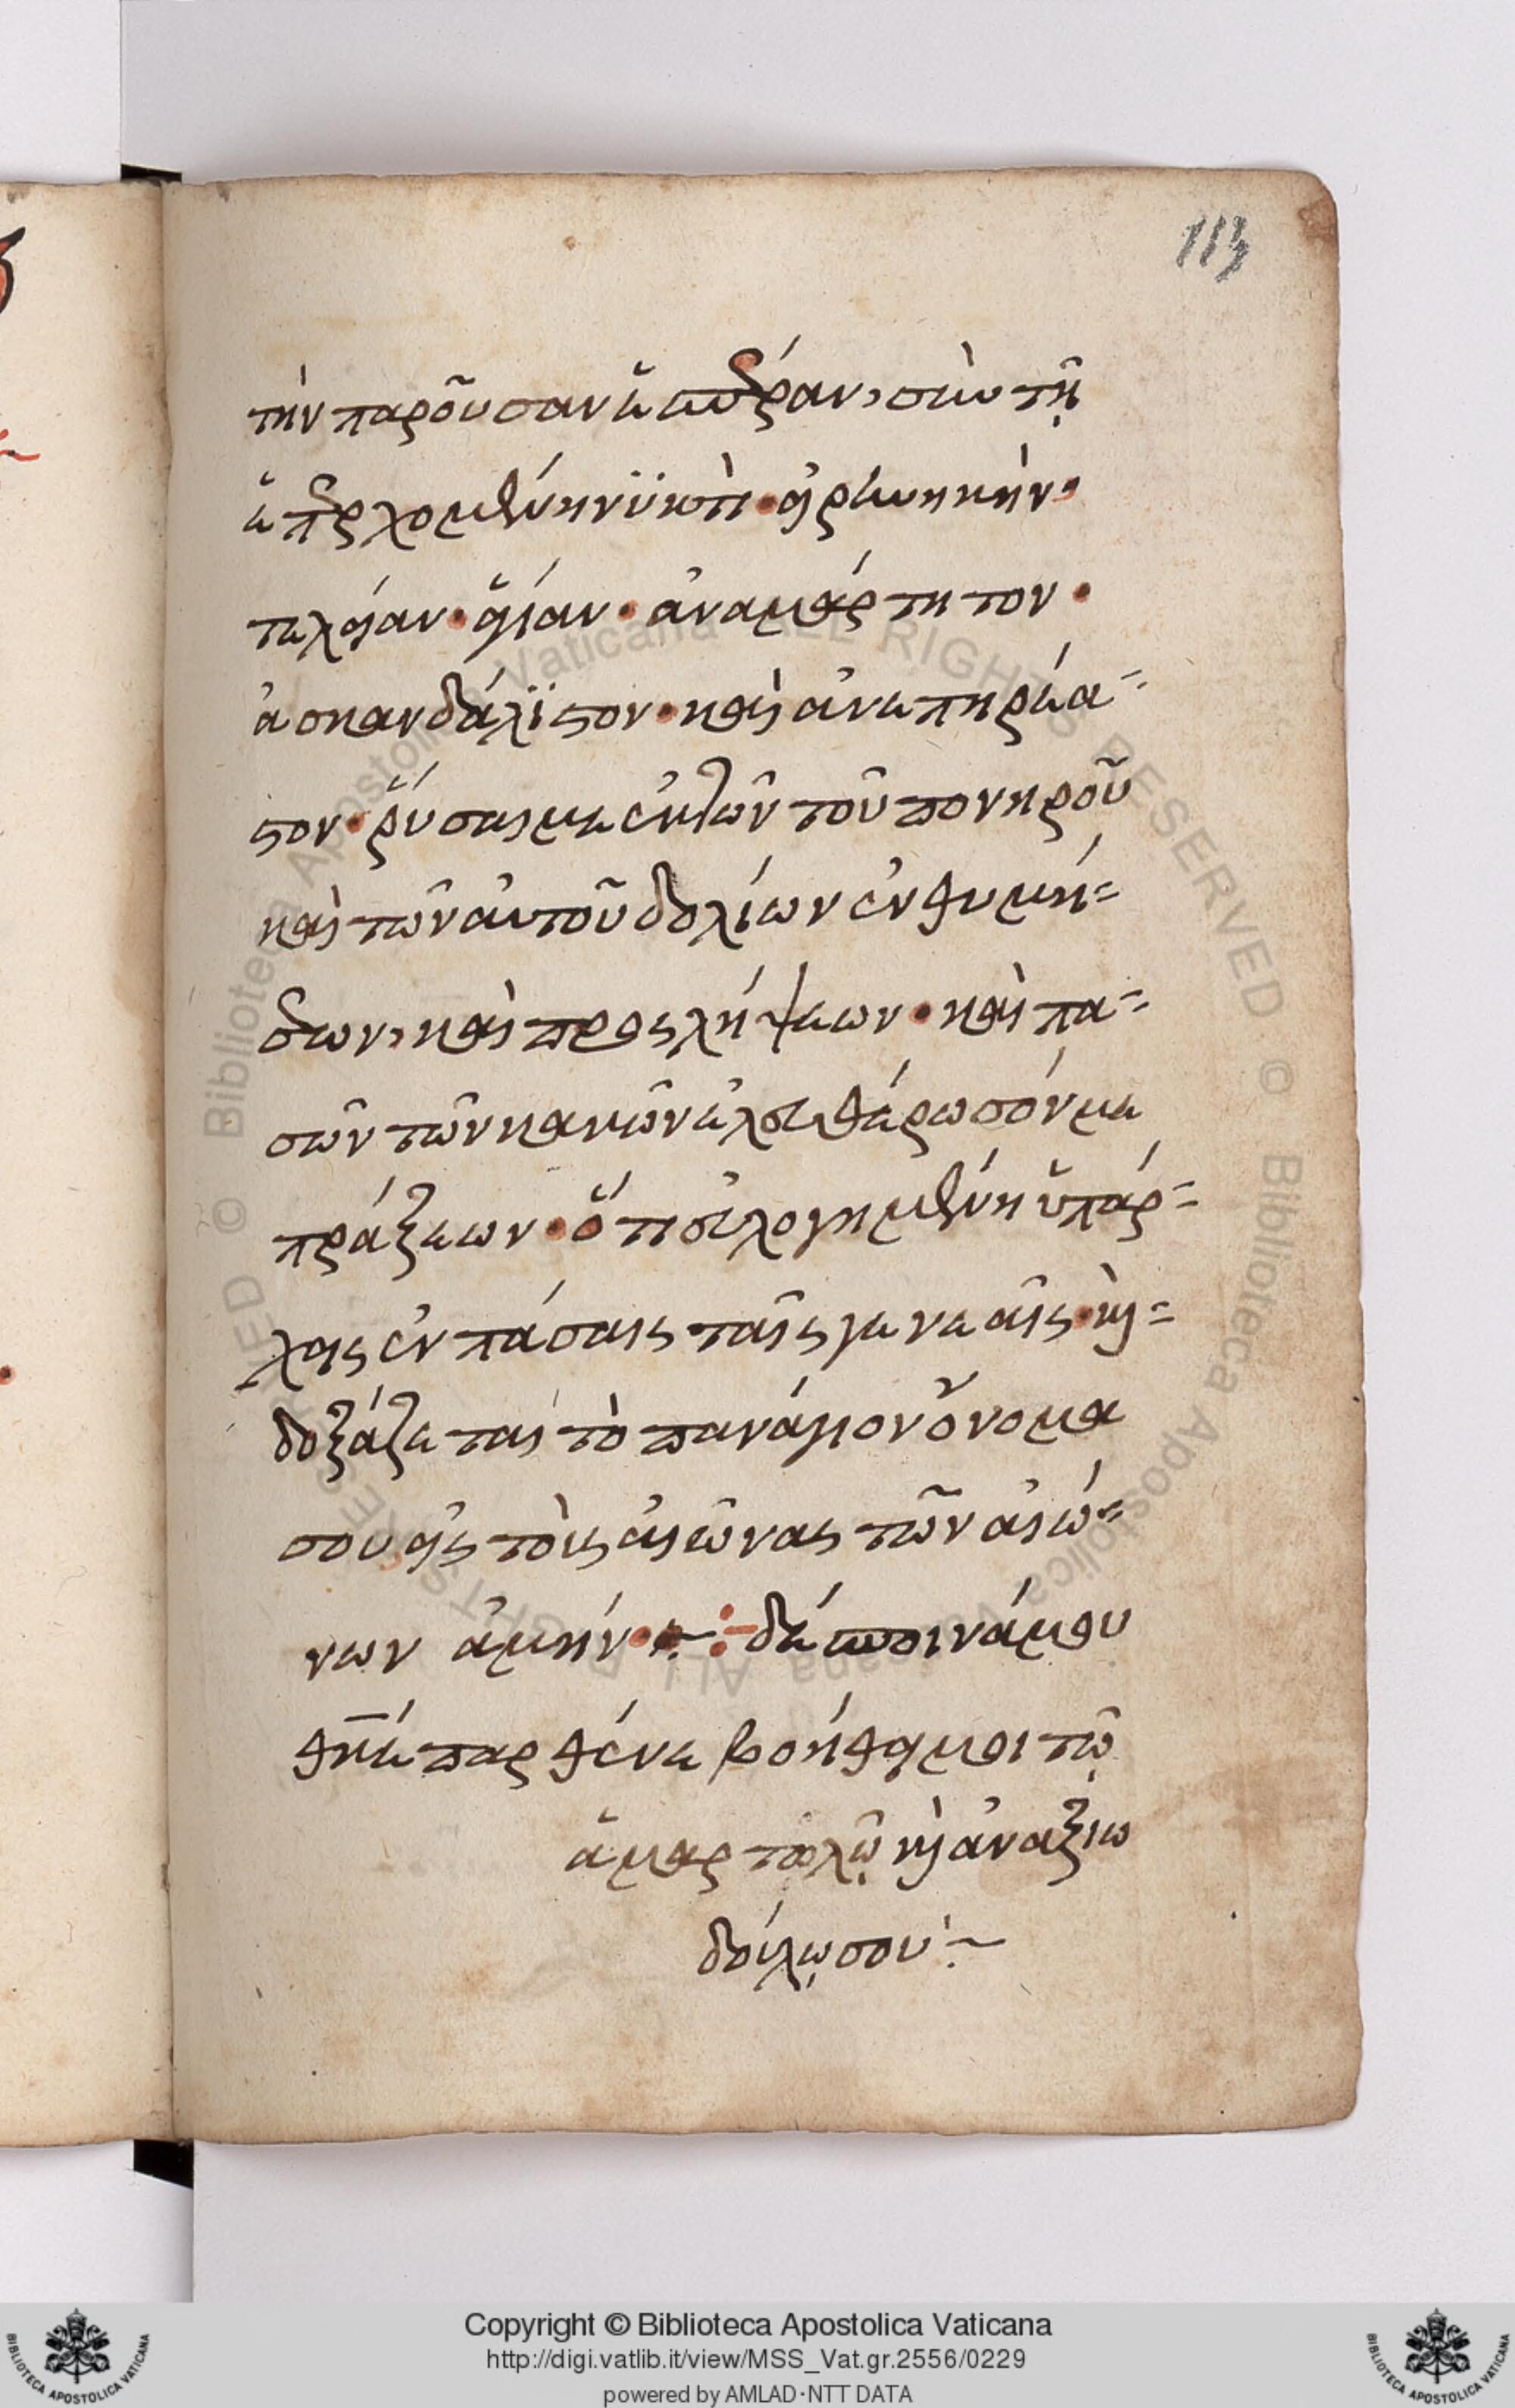 113
τὴν παροῦσαν ἑσπέραν, σὺν τῇ
ἐπερχομένη νϋκτὶ· εἰρηνικὴν·
τελείαν· ἁγίαν· ἀναμάρτητον·
ἀσκανδάλϊστον· καὶ ἀνεπηρέα-
στον· ῥύσαι με ἐκ τῶν τοῦ πονηροῦ
καὶ τῶν αὐτοῦ δολίων ἐνθυμή-
σεων, καὶ προσλήψεων· καὶ πα-
σῶν τῶν κακῶν ἐλευθέρωσόν με
πράξεων· ὅτι εὐλογημένη ὑπάρ-
χεις ἐν πάσαις ταῖς γενεαῖς· κὶ-
δοξάζεται τὸ πανάγιον ὄνομα
σου εἰς τοὺς αἰῶνας τῶν αἰώ-
νων ἀμήν· δέσποινά μου
θκ̅έ παρθένε βοήθει μοι τῷ
ἁμαρτολῷ κὶ ἀναξιω
δούλῳ σου
Copyright © Biblioteca Apostolica Vaticana
http://digi.vatlib.it/view/MSS_Vat.gr.2556/0229
powered by AMLAD·NTT DATA